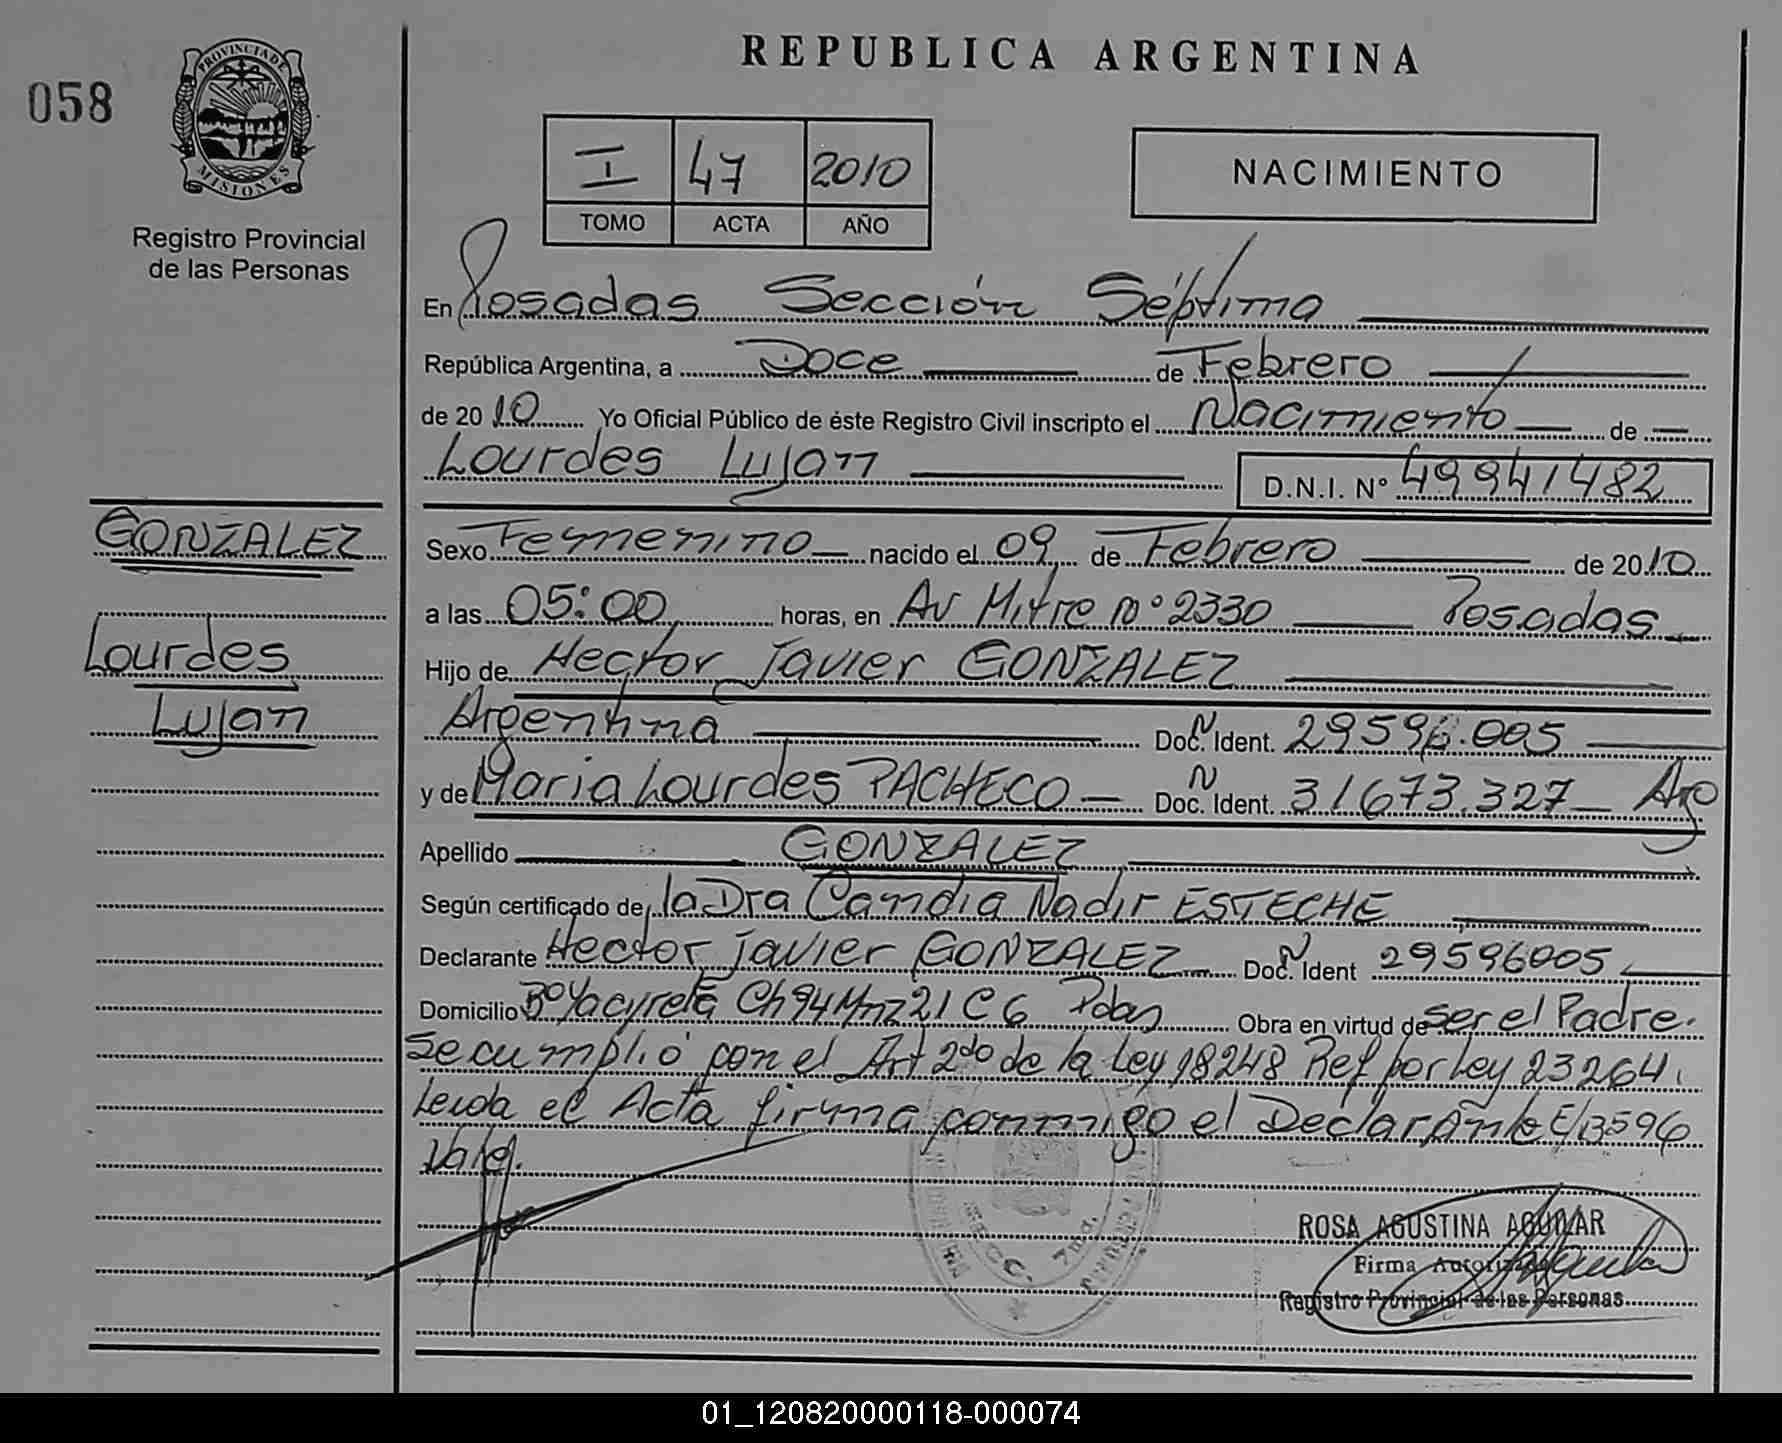 REPUBLICA ARGENTINA
058
PROVINCIA DE MISIONES
Registro Provincial
de las Personas
I 47 2010
TOMO ACTA AÑO
NACIMIENTO
En Posadas Sección Séptima
República Argentina, a Doce de Febrero
de 2010 Yo Oficial Público de éste Registro Civil inscripto el Nacimiento de
Lourdes Lujan D.N.I. Nº 49941482
GONZALEZ
Lourdes
Lujan
Sexo Femenino nacido el 09 de Febrero de 2010
a las 05:00 horas, en Av Mitre nº 2330 Posadas
Hijo de Hector Javier GONZALEZ
Argentina Doc. Ident. 29596.005
y de Maria Lourdes PACHECO Doc. Ident. 31673.327 Arg
Apellido GONZALEZ
Según certificado de la Dra Candia Nadir ESTECHE
Declarante Hector Javier GONZALEZ Doc. Ident 29596005
Domicilio Bº Yacyretá Ch 94 Mnz 21 C 6 Pdas Obra en virtud de ser el Padre.
Se cumplió con el Art 2do de la Ley 18248 Ref por Ley 23264.
Leida el Acta firma conmigo el Declarante E/B596
Vale.
SECC. 7ma.
ROSA AGUSTINA AGUILAR
Firma Autorizada
Registro Provincial de las Personas
01_120820000118-000074